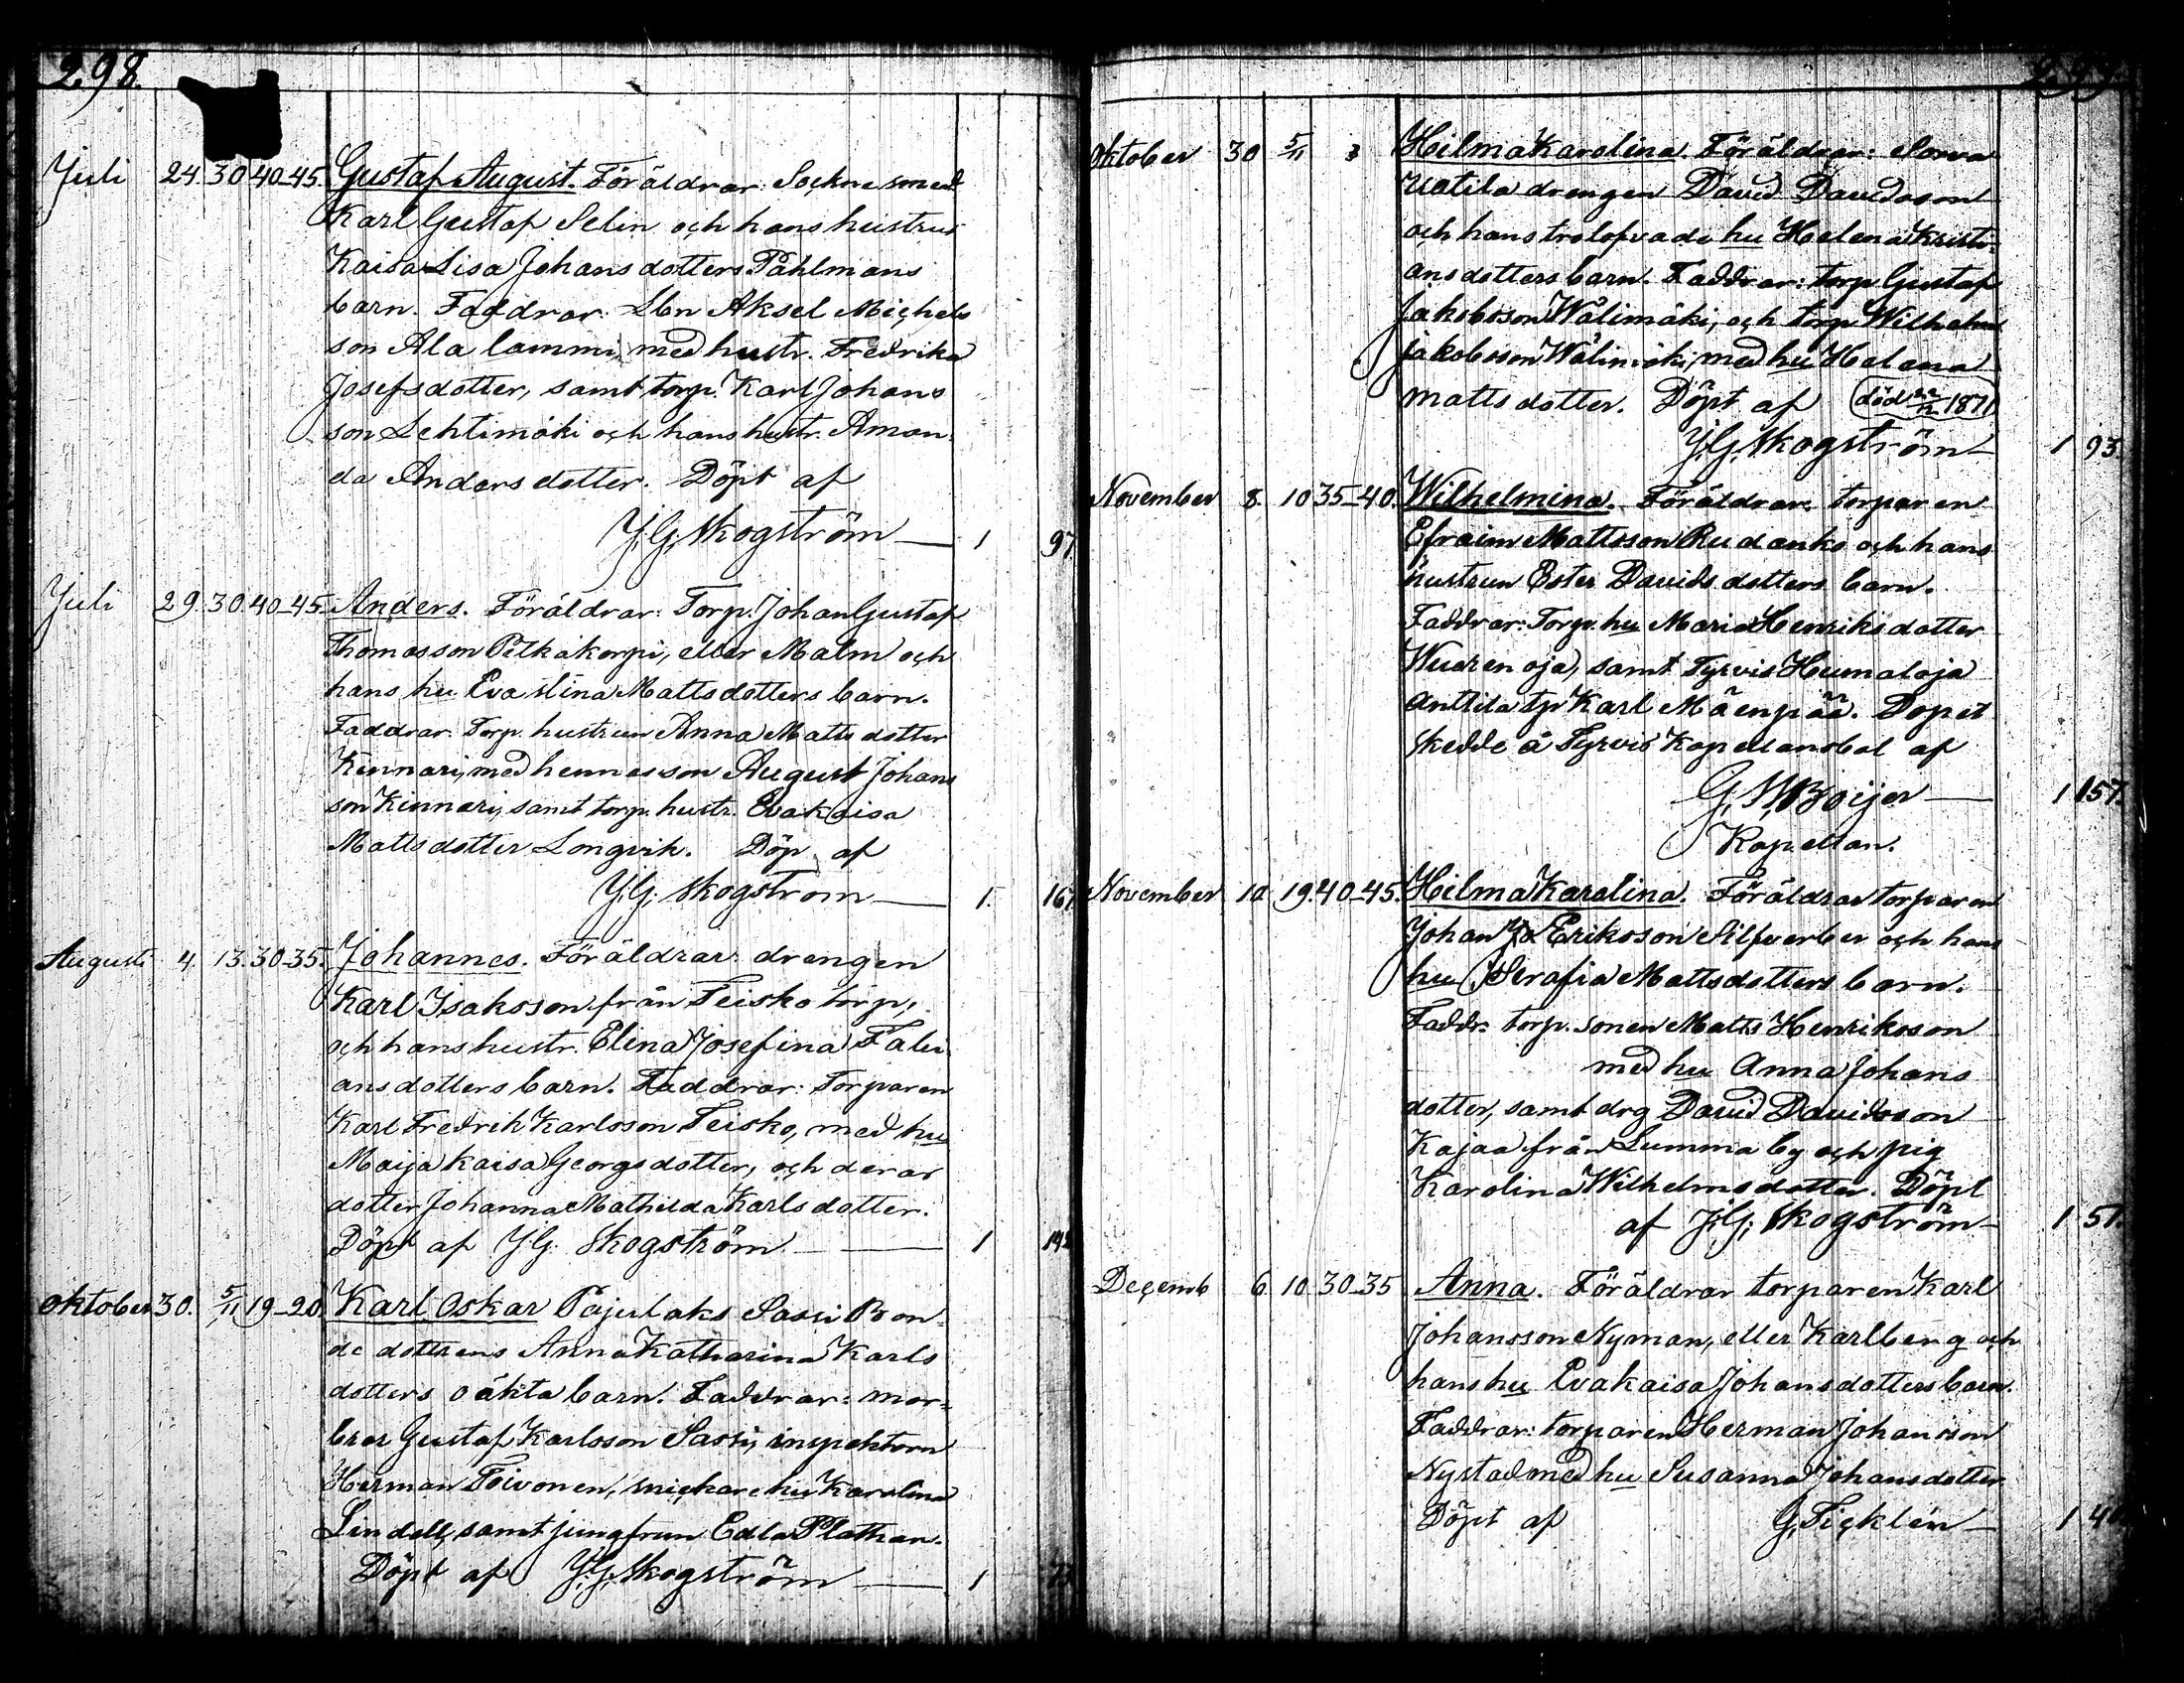 298.
Juli 24. 30 40-45. Gustaf August. Föräldrar: Sockne smed
Karl Gustaf Selin och hans hustrus
Kaisa Lisa Johansdotters Påhlmans
barn. Faddrar: Sbn Aksel Michels
son Ala lammi, med hustr. Fredrika
Josefsdotter, samt torp. Karl Johans
son Lehtimäki och hans hustr. Aman
da Anders dotter. Döpt af
J.G. Skogström — 1 97
Juli 29. 30 40-45. Anders. Föräldrar: Torp. Johan Gustaf
Thomasson Pitkäkorpi, eller Malm och
hans hu Eva Stina Mattsdotters barn.
Faddrar: Torp. hustrun Anna Matts dotter
Kinnari, med hennes son August Johans
son Kinnari, samt torp. hustr. Eva kaisa
Mattsdotter Longvik. Döp. af
J.G. Skogstrom — 1. 167
Augusti 4. 13. 30-35. Johannes. Föräldrar: drengen
Karl Isaksson från Teisko torp,
och hans hustr. Elina Josefina Fabi
ans dotters barn. Faddrar: Torparen
Karl Fredrik Karlsson Teisko, med hu
Maija kaisa Georgsdotter, och deras
dotter Johanna Mathilda Karls dotter.
Döpt af J.G. Skogström — 1
Oktober 30. 5/11 19-20. Karl Oskar Pajulaks Sassi Bon-
de dottrens Anna Katharina Karls
dotters oäkta barn. Faddrar: mor-
bror Gustaf Karlsson Sassi, inspektorn
Herman Toivonen, snickare hu Karolina
Lindell, samt jungfrun Edla Plathan.
Döpt af J.G. Skogström — 1
299
Oktober 30 5/11 Hilma Karolina. Föräldrar: Sorva
Uotila drengen David Davidsson
och hans trolofvade hu Helena Kristi-
ans dotters barn. Faddrar: torp Gustaf
Jakobsson Wälimäki, och torp Wilhelm
Jakobsson Wälimäki, med hu Helena
Matts dotter. Döpt af (död 22/12 1871)
J.G. Skogström — 1 93.
November 8. 10 35-40. Wilhelmina. Föräldrar: torparen
Efraim Mattsson Rudanko och hans
hustrun Ester Davids dotters barn.
Faddrar: Torp. hu Maria Henriksdotter
Wuoren oja, samt Tyrvis Humaloja
Anttila tp Karl Mäenpää. Dopet
skedde å Tyrvis Kapellansbol af
G. M. Boijer — 1 157.
Kapellan.
November 10. 19. 40-45. Hilma Karolina. Föräldrar torparen
Johan Eriksson Silfverber och hans
hu Serafia Mattsdotters barn.
Faddr: torp. sonen Matts Henriksson
med hu Anna Johans
dotter, samt drg David Davidsson
Kajaa från Lumma by och pig
Karolina Wilhelmsdotter. Döpt
af J.G. Skogström — 1 51.
Decemb 6 10 30-35 Anna. Föräldrar torparen Karl
Johansson Nyman, eller Karlberg och
hans hu Eva kaisa Johansdotters barn.
Faddrar: torparen Herman Johansson
Nystad med hu Susanna Johansdotter
Döpt af G. Sicklén — 1